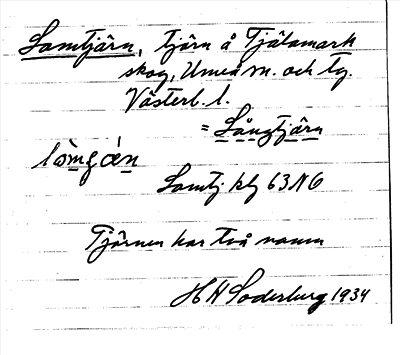 Lomtjärn, tjärn å Tjälamark
skog, Umeå sn. och tg.
Västerb. l.
= Långtjärn
Lomtj. klg 63 N6
Tjärnen har två namn
H H Soderburg 1934